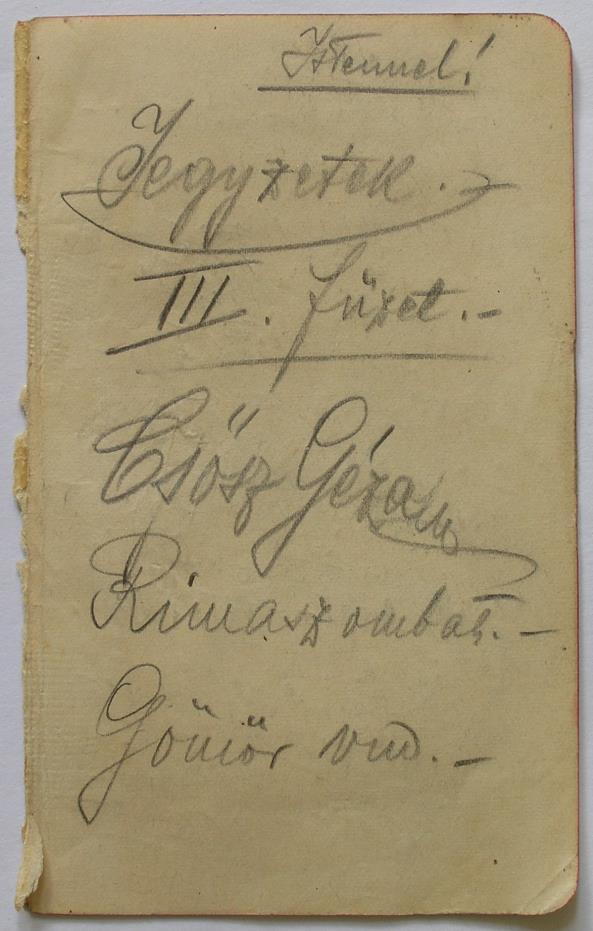 Istennel!
Jegyzetek.-
III. füzet.-
Csősz Géza
Rimaszombat.-
Gömör vm.-